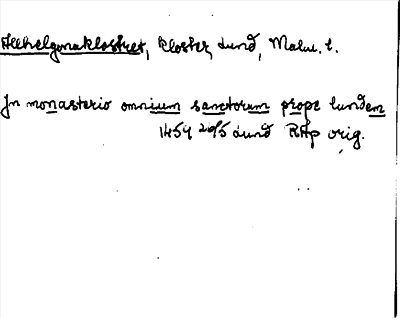 Allhelgonaklostret, kloster, Lund, Malm. l.
In monasterio omnium sanctorum prope lundem
1454 20/5 Lund RAp orig.